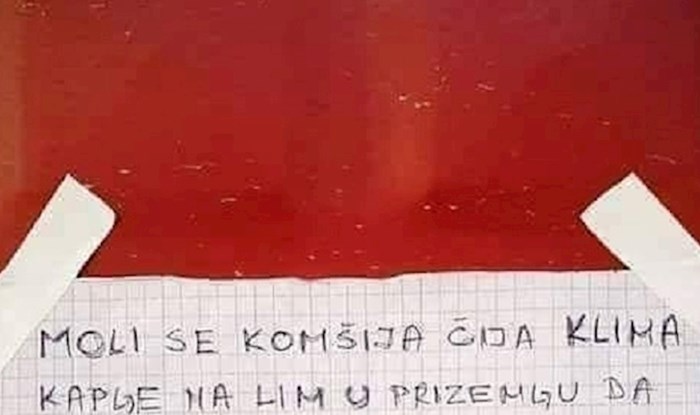 MOLI SE KOMŠIJA ČIJA KLIMA
KAPLJE NA LIM U PRIZEMLJU DA